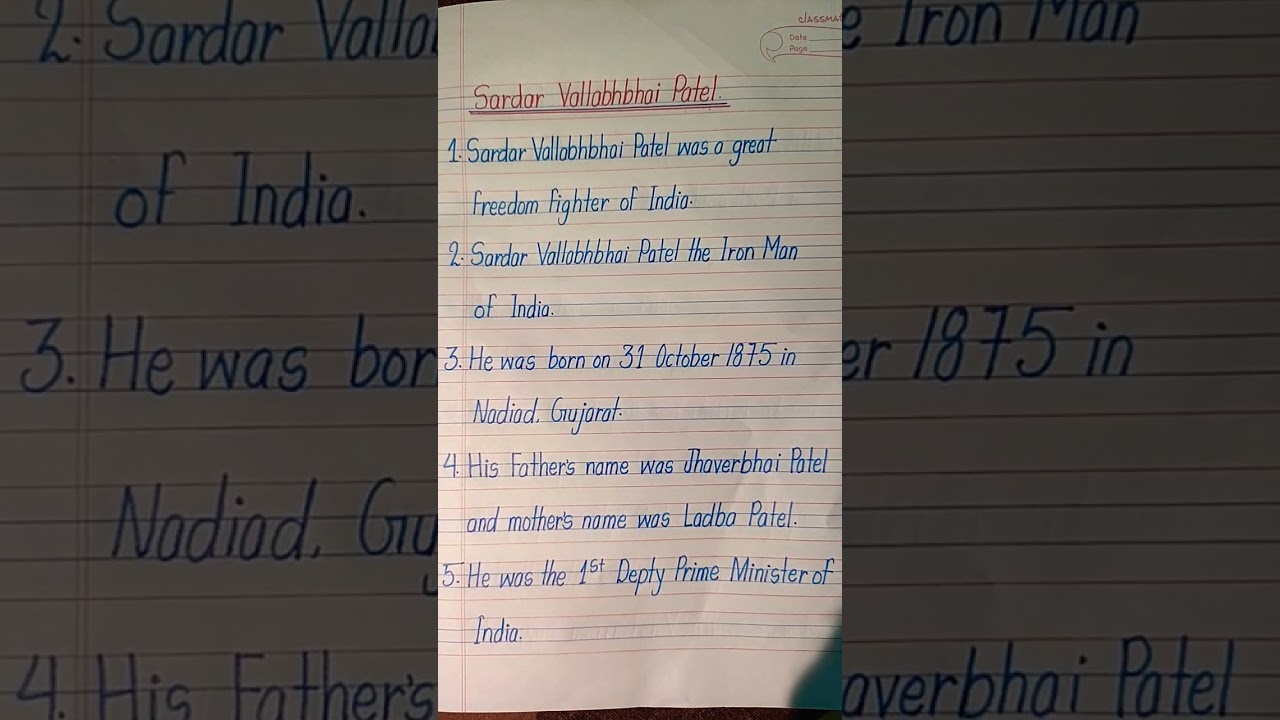 classmat
Date
Page
Sardar Vallabhbhai Patel.
1. Sardar Vallabhbhai Patel was a great
freedom fighter of India.
2. Sardar Vallabhbhai Patel the Iron Man
of India.
3. He was born on 31 October 1875 in
Nadiad, Gujarat.
4. His Father's name was Jhaverbhai Patel
and mother's name was Ladba Patel.
5. He was the 1st Depty Prime Minister of
India.